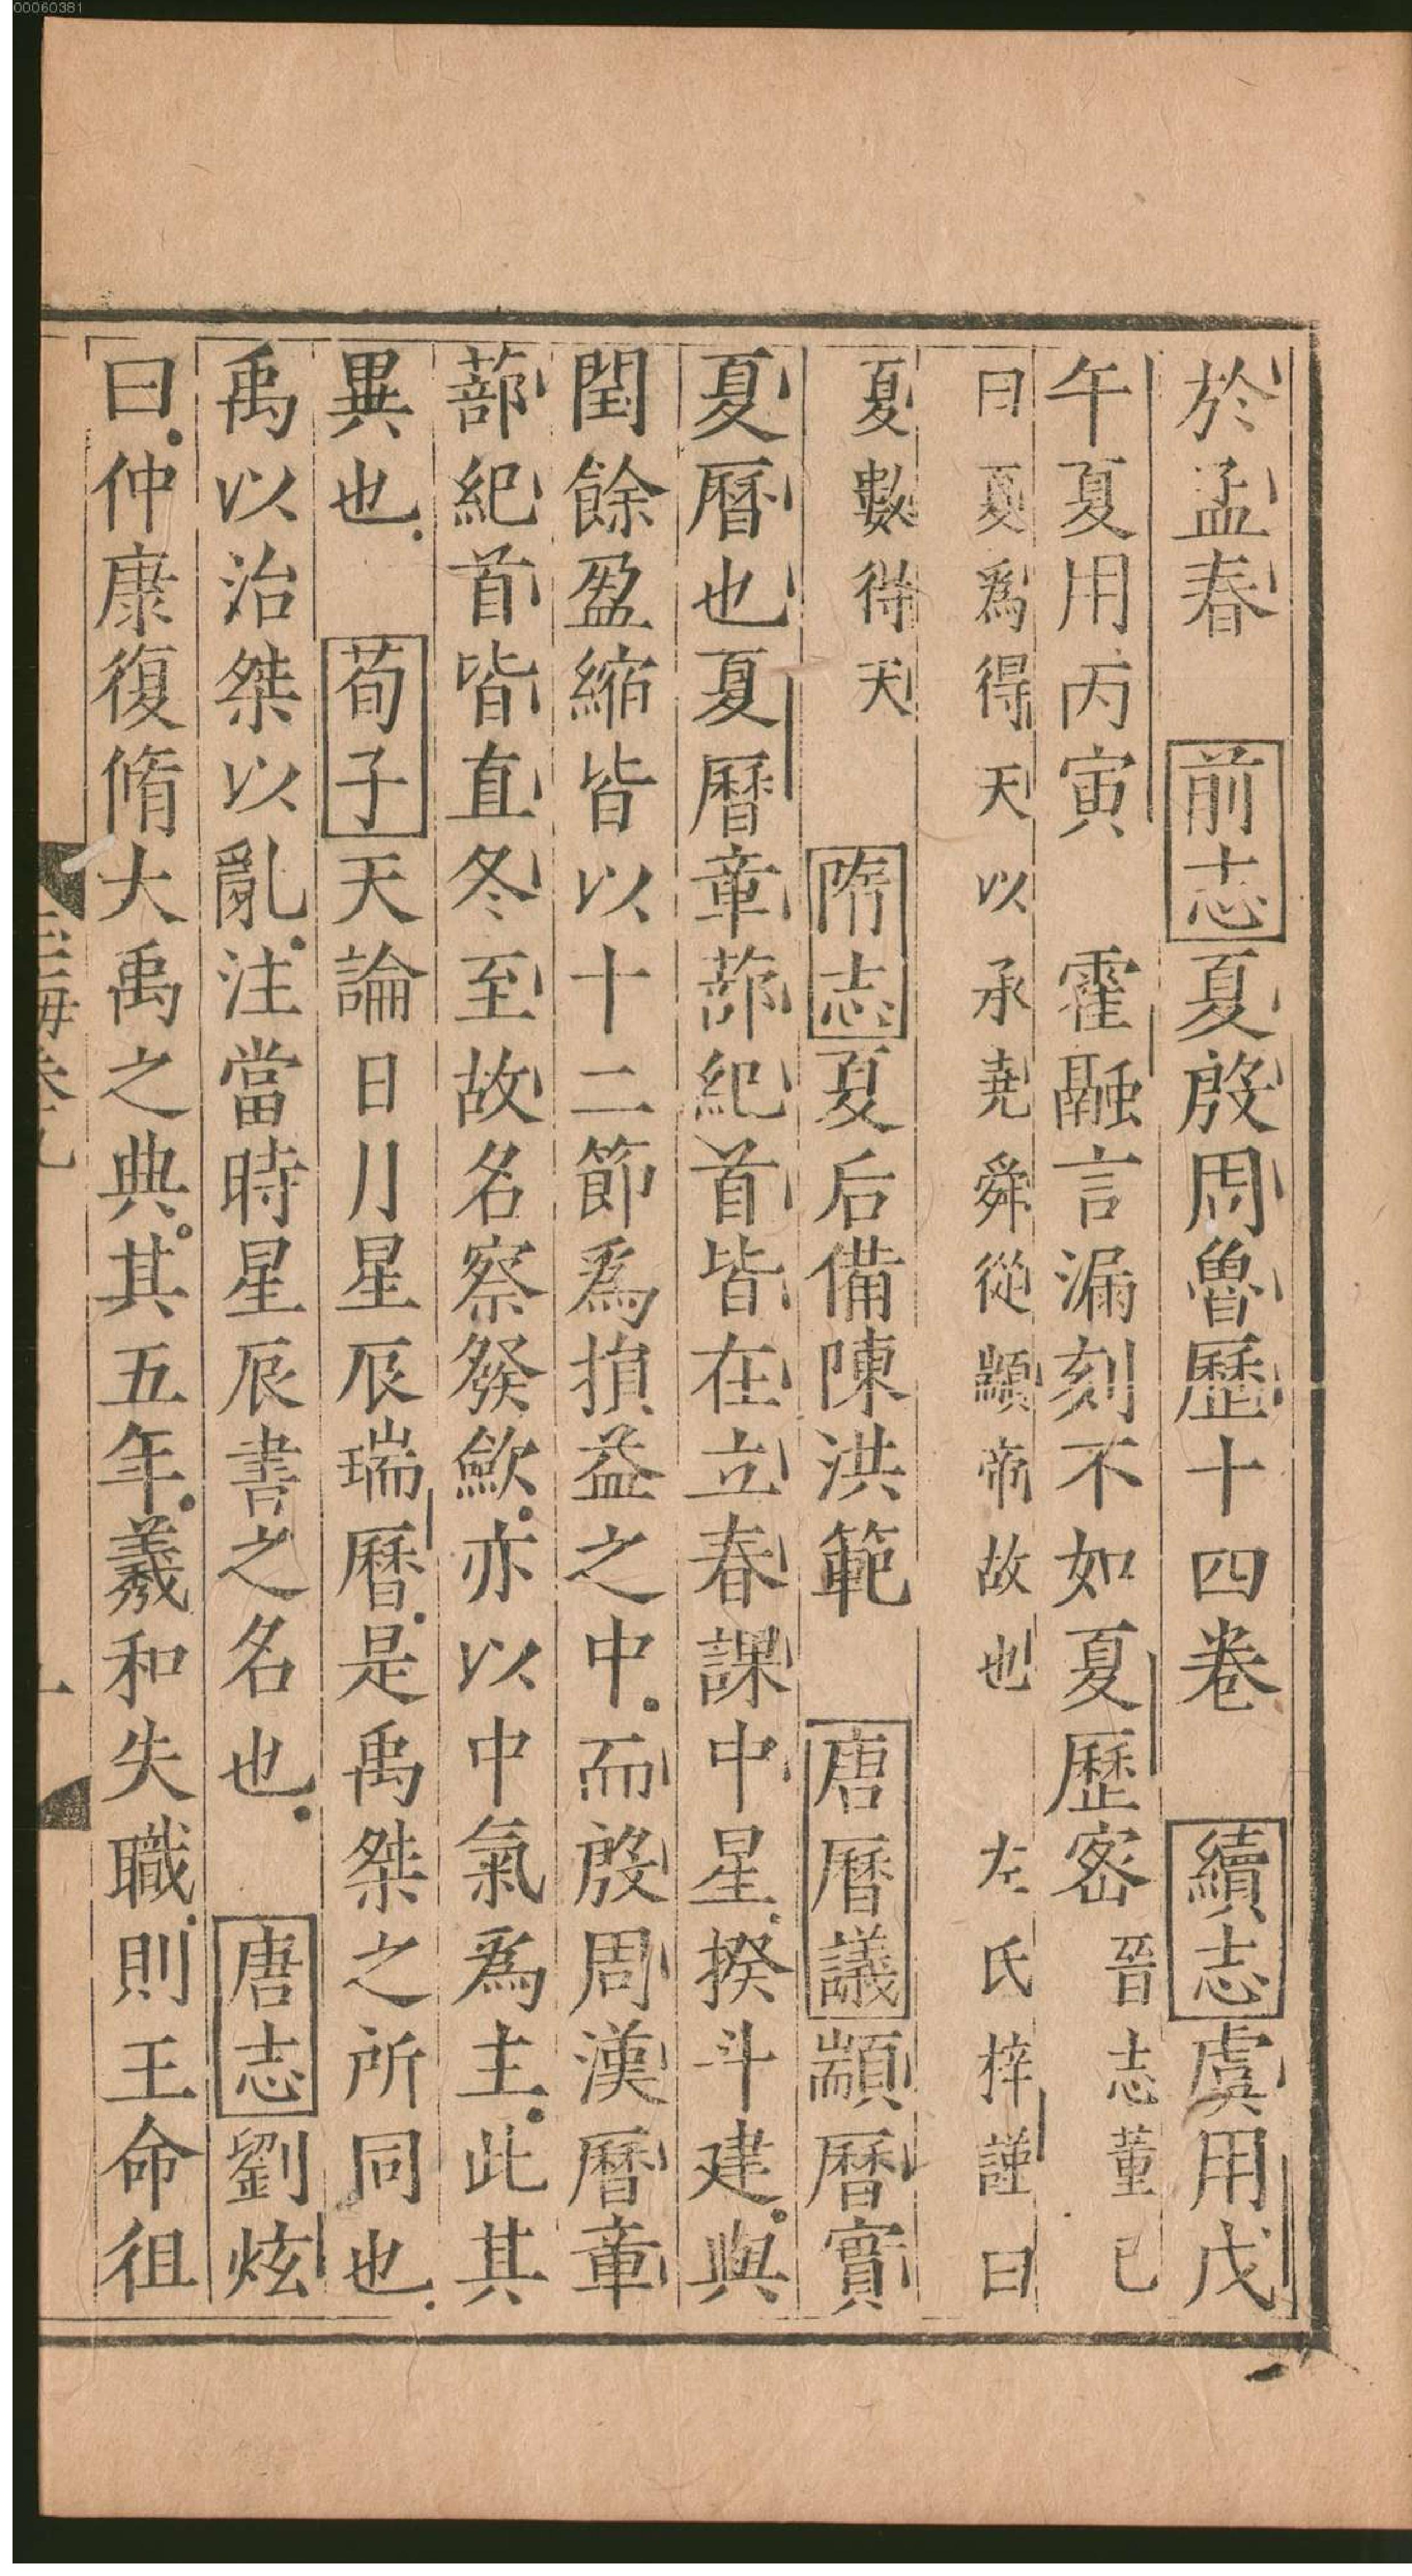 00060381
於孟春　前志夏殷周魯歷十四卷　續志虞用戊
午夏用丙寅　霍融言漏刻不如夏歷密晉志董巳
曰夏爲得天以承堯舜從顓帝故也　左氏梓謹曰
夏數得天　隋志夏后備陳洪範　唐曆議顓曆實
夏曆也夏曆章蔀紀首皆在立春課中星揆斗建與
閏餘盈縮皆以十二節爲損益之中而殷周漢曆章
蔀紀首皆直冬至故名察發斂亦以中氣爲主此其
異也　荀子天論日月星辰瑞曆是禹桀之所同也
禹以治桀以亂注當時星辰書之名也　唐志劉炫
曰仲康復脩大禹之典其五年羲和失職則王命徂
玉海卷九